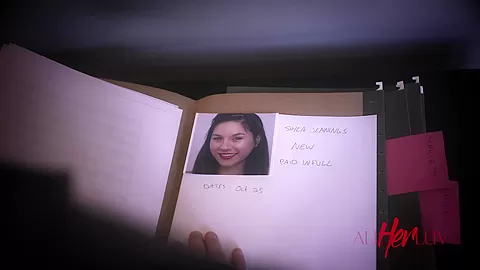 SHEA JENNINGS
NEW
PAID IN FULL
DATES: Oct 25
ALL Her LUV